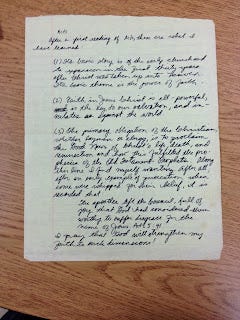 Acts
After a first reading of Acts, these are what I
have learned:
(1) The basic story is of the early church and
its expansion in the first thirty years
after Christ was taken up into heaven.
Its basic theme is the power of faith.
(2) Faith in Jesus Christ is all-powerful,
is the key to our salvation, and
us against the world.
(3) The primary obligation of the Christian,
whether layman or clergy, is to proclaim
the Good News of Christ's life, death, and
resurrection and how this fulfilled the pro-
phecies of the Old Testament Prophets. Along
this line I find myself wondering, after all,
after an early example of persecution, when
some were whipped for their belief, it is
recorded that
The apostles left the Council, full of
joy that God had considered them
worthy to suffer disgrace for the
name of Jesus. Acts 5:41
I pray that God will strengthen my
faith to such dimensions!